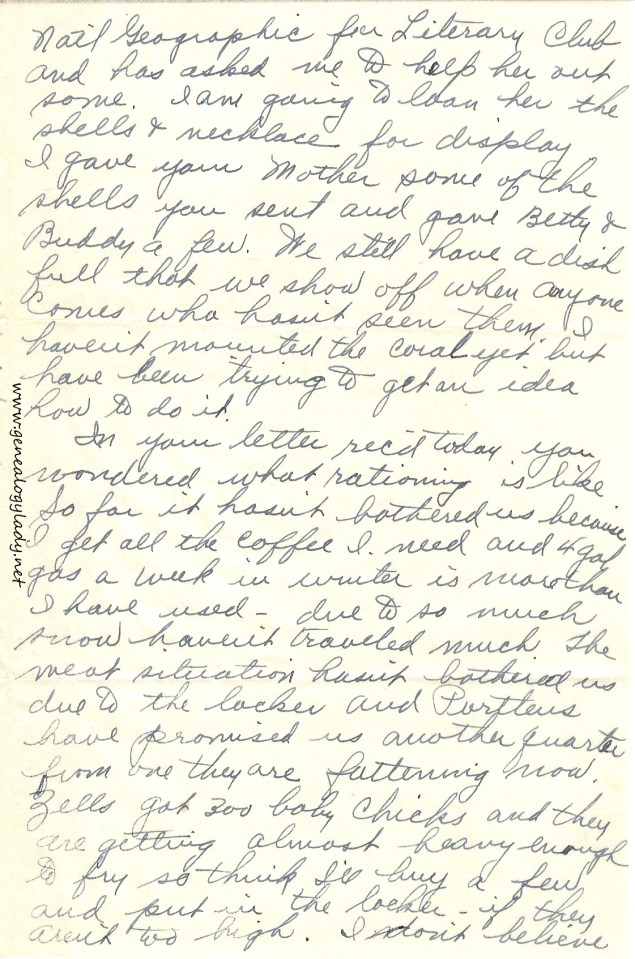 Natl Geographic for Literary Club
and has asked me to help her out
some. I am going to loan her the
shells & necklace for display
I gave your Mother some of the
shells you sent and gave Betty &
Buddy a few. We still have a dish
full that we show off when anyone
comes who hasn't seen them. I
haven't mounted the coral yet but
have been trying to get an idea
how to do it.
In your letter rec'd today you
wondered what rationing is like
So far it hasn't bothered us because
I get all the coffee I need and 4 gal
gas a week in winter is more than
I have used - due to so much
snow haven't traveled much The
meat situation hasn't bothered us
due to the locker and
have promised us another quarter
from one they are fattening now.
Zells got 300 baby chicks and they
are getting almost heavy enough
to fry so think I'll buy a few
and put in the locker - if they
aren't too high. I don't believe
www.genealogylady.net